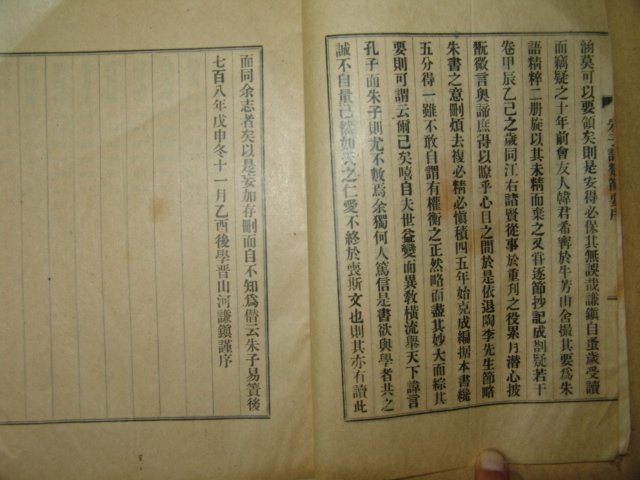 涵莫可以要領矣則是安得必保其無誤哉謙鎭自蚤歲受讀
而竊疑之十年前會友人韓君希寗於牛芳山舍撮其要爲朱
語精粹二册旋以其未精而棄之又嘗逐節抄記成劄疑若干
卷甲辰乙巳之歲同江右諸賢從事於重刋之役累月潜心披
翫微言奥諦庶得以瞭乎心目之間於是依退陶李先生節略
朱書之意刪煩去複必精必愼積四五年始克成編据本書纔
五分得一雖不敢自謂有權衡之正然略而盡其妙大而綜其
要則可謂云爾已矣嘻自夫世益變而異敎橫流擧天下諱言
孔子而朱子則尤不數焉余獨何人篤信是書欲與學者共之
誠不自量已然如天之仁愛不終於喪斯文也則其亦有讀此
而同余志者矣以是妄加存刪而自不知爲僭云朱子易簀後
七百八年戊申冬十一月乙酉後學晋山河謙鎭謹序